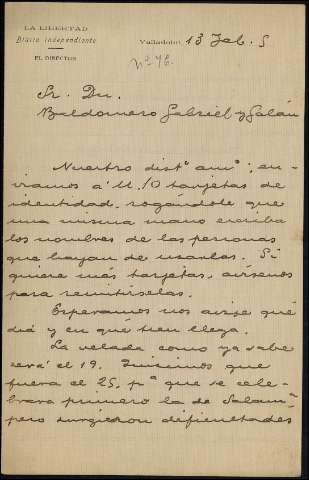 LA LIBERTAD
Diario independiente
EL DIRECTOR
Valladolid, 13 Feb. 5
Nº 76.
Sr. Dn.
Baldomero Gabriel y Galán
Nuestro distº amº: en-
viamos á U. 10 tarjetas de
identidad, rogándole que
una misma mano escriba
los nombres de las personas
que hayan de usarlas. Si
quiere más tarjetas, avísenos
para remitírselas.
Esperamos nos avise qué
día y en qué tren llega.
La velada como ya sabe
será el 19. Quisimos que
fuera el 25, pª que se cele-
brara primero la de Salamª
pero surgieron dificultades